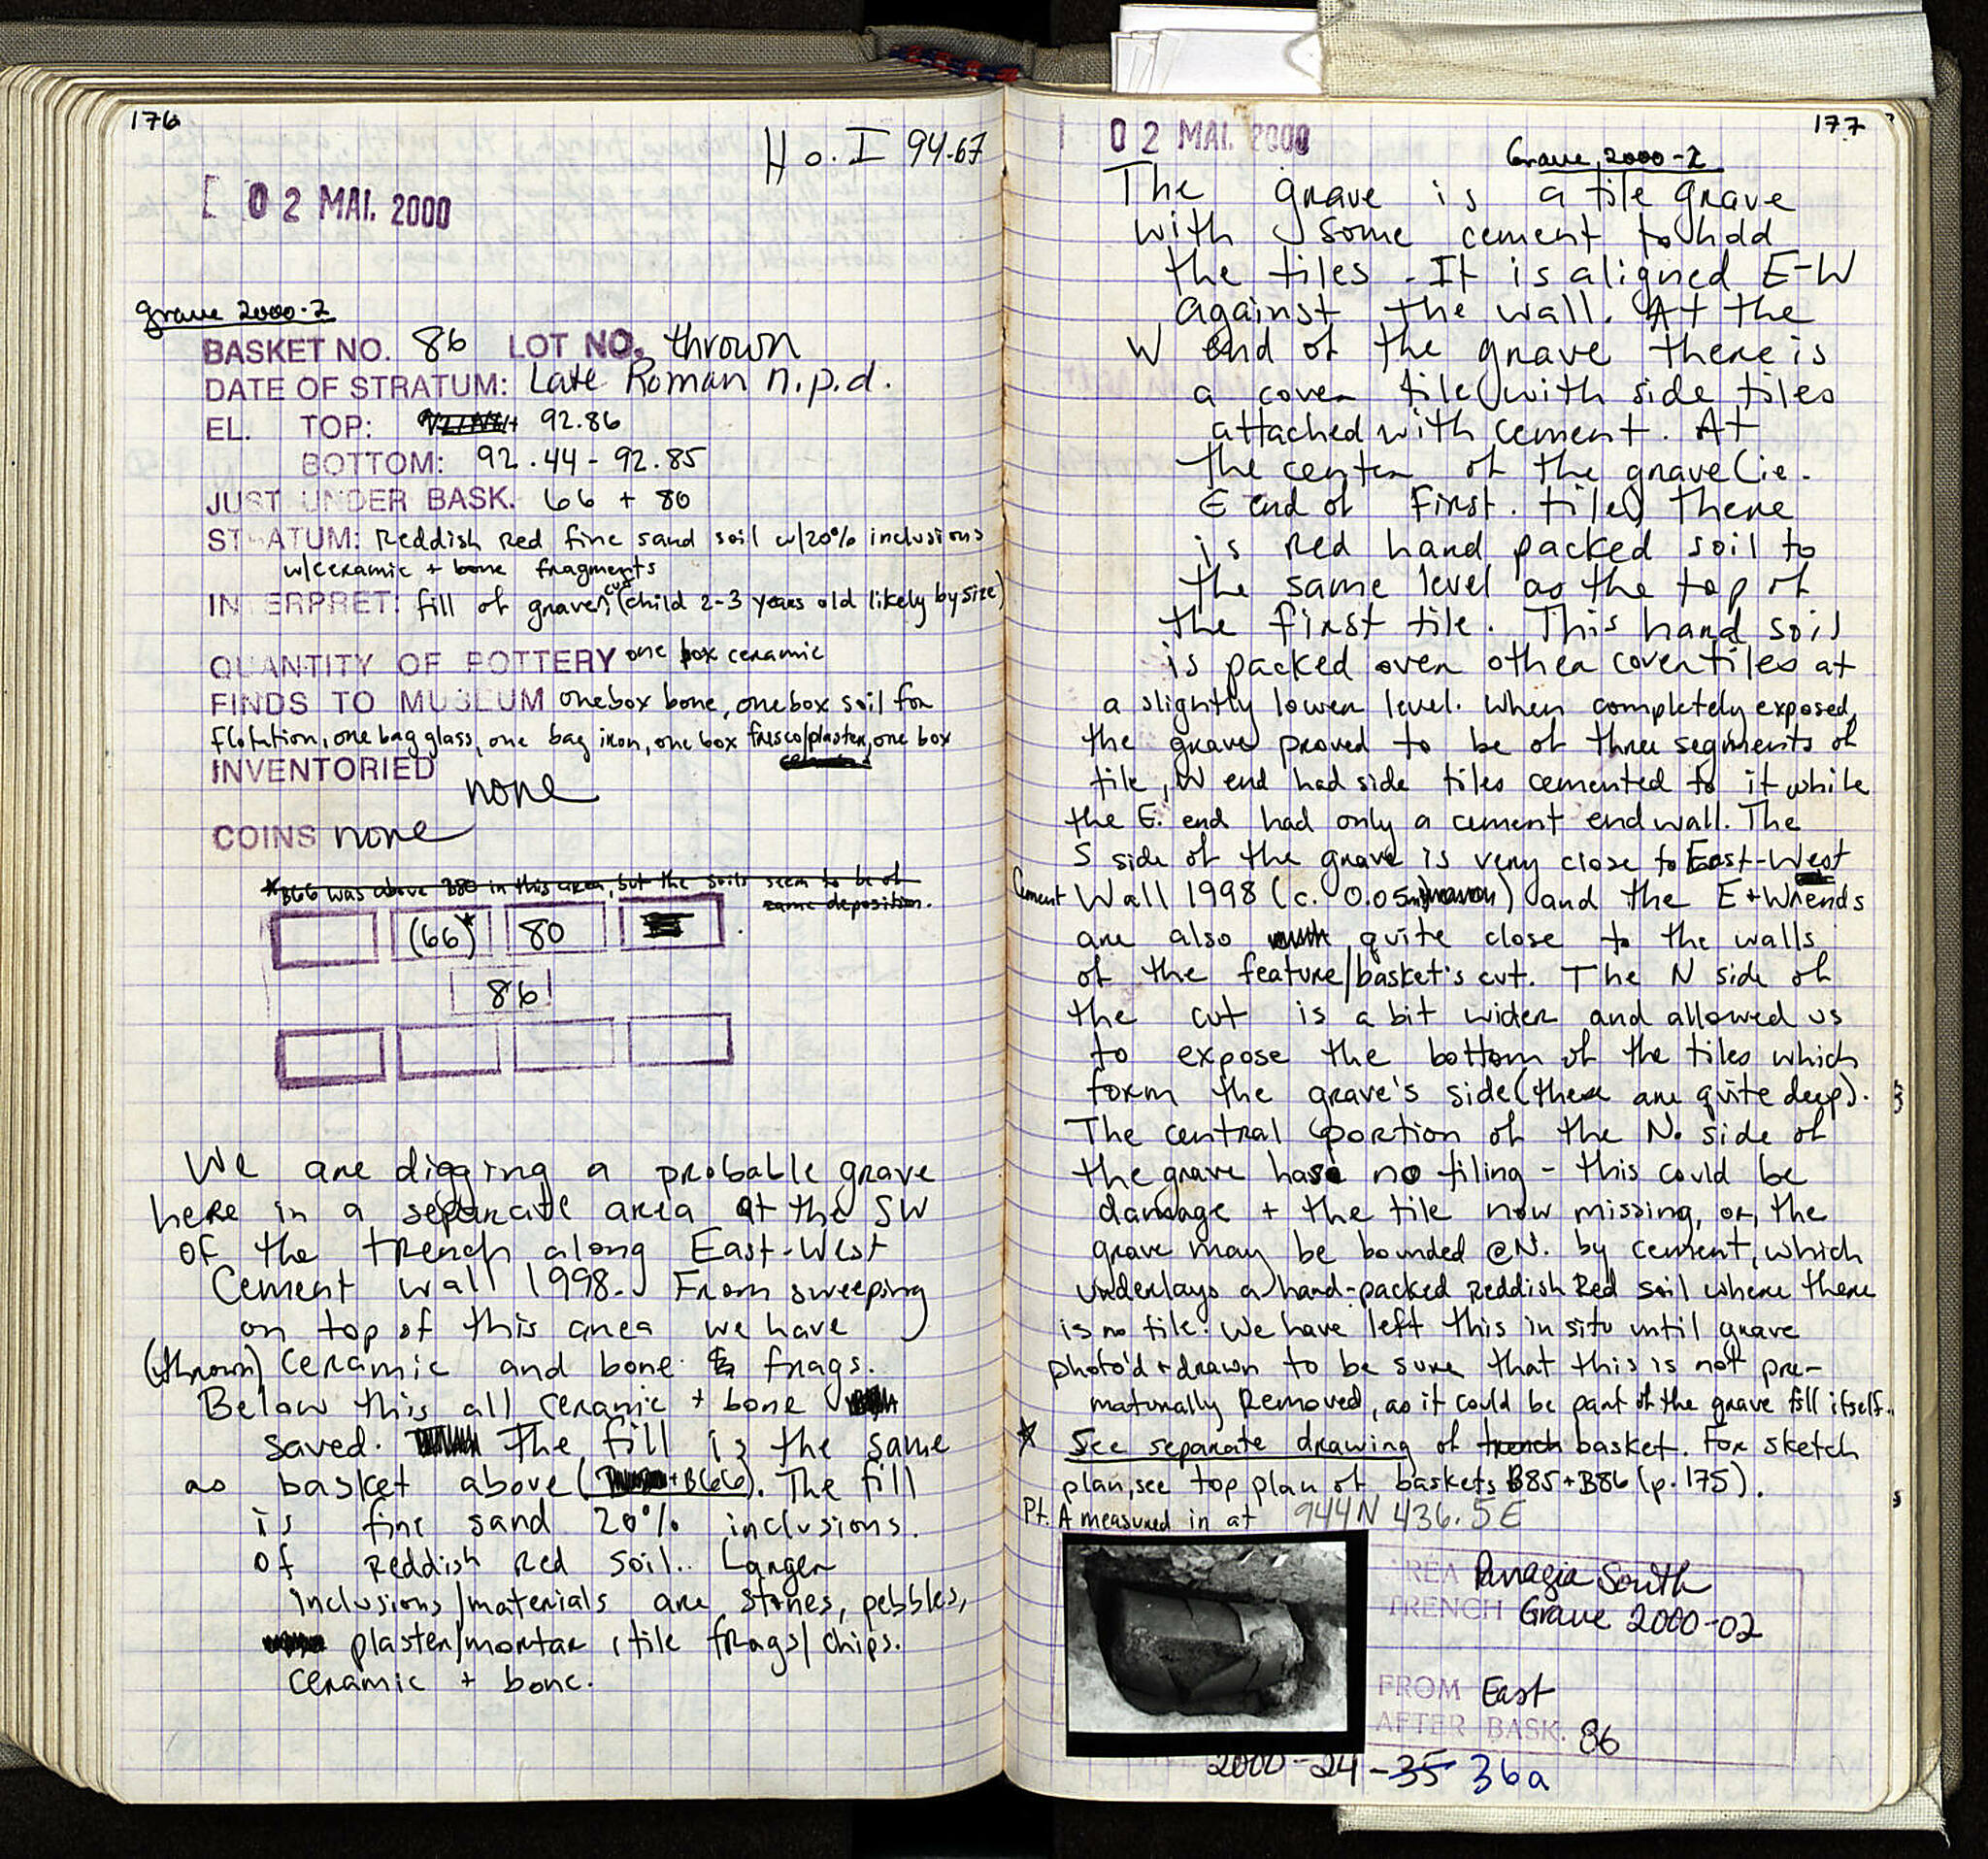 176
Ho. I 94-67
02 MAI. 2000
grave 2000-2
BASKET NO. 86 LOT NO. thrown
DATE OF STRATUM: Late Roman n.p.d.
EL. TOP: 92.86
BOTTOM: 92.44 - 92.85
JUST UNDER BASK. 66 + 80
STRATUM: Reddish Red fine sand soil w/20% inclusions
w/ceramic + bone fragments
INTERPRET: fill of grave cut (child 2-3 years old likely by size)
QUANTITY OF POTTERY one box ceramic
FINDS TO MUSEUM one box bone, one box soil for
flotation, one bag glass, one bag iron, one box fresco/plaster, one box
INVENTORIED
none
COINS none
*B66 was above B80 in this area, but the soils seem to be of
same deposition.
(66)* 80
86
We are digging a probable grave
here in a separate area at the SW
of the trench along East-West
Cement Wall 1998. From sweeping
on top of this area we have
(thrown) ceramic and bone frags.
Below this all ceramic + bone
saved. The fill is the same
as basket above (+B66). The fill
is fine sand 20% inclusions.
of Reddish Red soil. Larger
inclusions/materials are stones, pebbles,
plaster/mortar, tile frags/chips.
ceramic + bone.
02 MAI. 2000
177
Grave 2000-2
The grave is a tile grave
with some cement to hold
the tiles. It is aligned E-W
against the wall. At the
W end of the grave there is
a cover tile with side tiles
attached with cement. At
the center of the grave (ie.
E end of first tile) there
is red hard packed soil to
the same level as the top of
the first tile. This hard soil
is packed over other cover tiles at
a slightly lower level. When completely exposed,
the grave proved to be of three segments of
tile, W end had side tiles cemented to it while
the E. end had only a cement end wall. The
S side of the grave is very close to East-West
Cement Wall 1998 (c. 0.05m) and the E + W ends
are also quite close to the walls
of the feature/basket's cut. The N side of
the cut is a bit wider and allowed us
to expose the bottom of the tiles which
form the grave's side (these are quite deep).
The central portion of the N. side of
the grave has no tiling - this could be
damage + the tile now missing, or, the
grave may be bounded @N. by cement, which
underlays a hard-packed Reddish Red soil where there
is no tile. We have left this in situ until grave
photo'd + drawn to be sure that this is not pre-
maturally Removed, as it could be part of the grave fill itself.
* See separate drawing of trench basket. For sketch
plan, see top plan of baskets B85+B86 (p.175).
Pt. A measured in at 944N 436.5E
AREA Panagia South
TRENCH Grave 2000-02
FROM East
AFTER BASK. 86
2000-24-35 36a